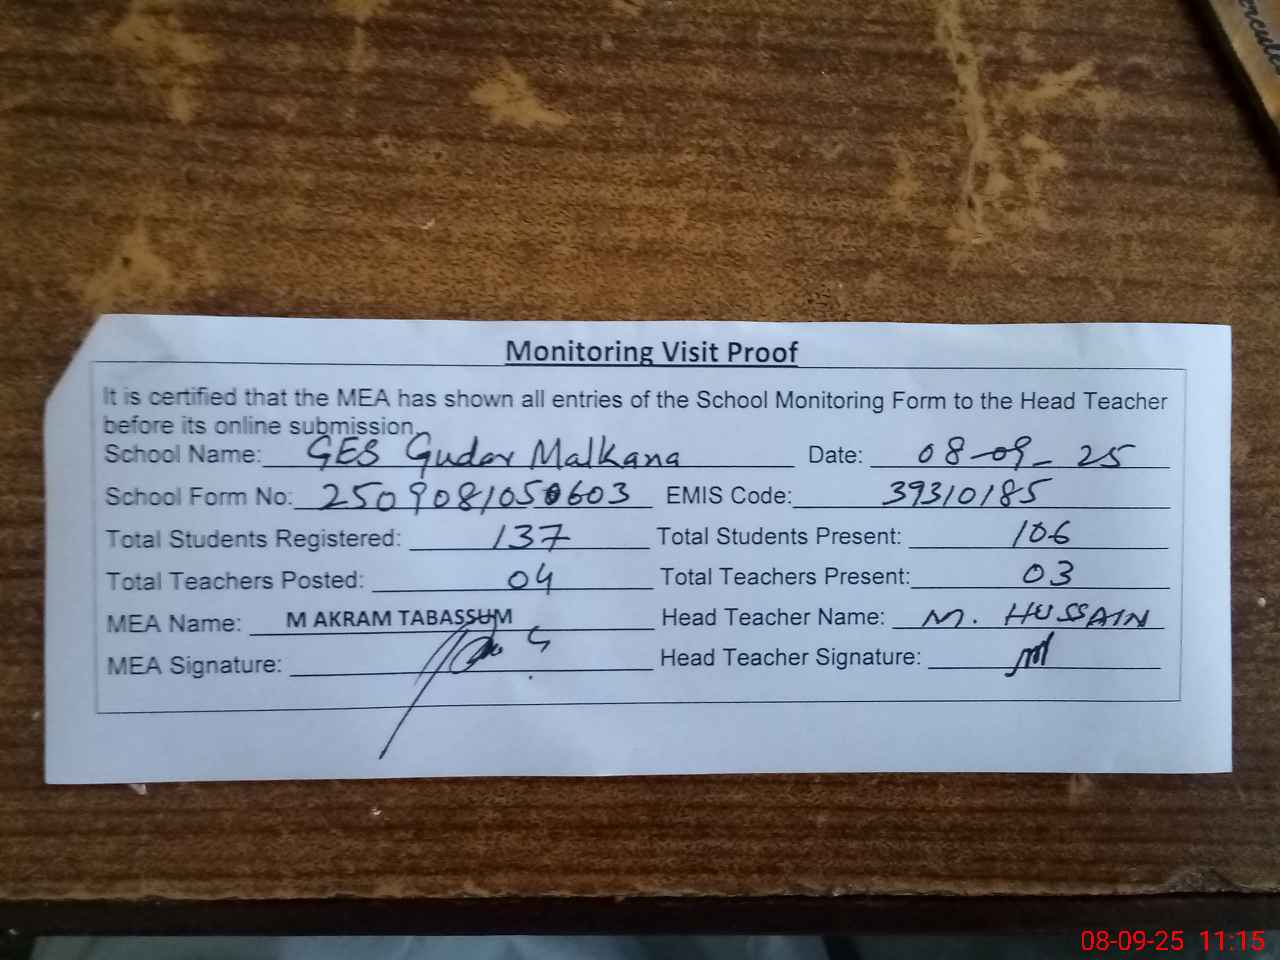 Monitoring Visit Proof
It is certified that the MEA has shown all entries of the School Monitoring Form to the Head Teacher
before its online submission.
School Name: GES Gudar Malkana Date: 08-09-25
School Form No: 2509081050603 EMIS Code: 39310185
Total Students Registered: 137 Total Students Present: 106
Total Teachers Posted: 04 Total Teachers Present: 03
MEA Name: M AKRAM TABASSUM Head Teacher Name: M. HUSSAIN
MEA Signature: Head Teacher Signature:
08-09-25 11:15